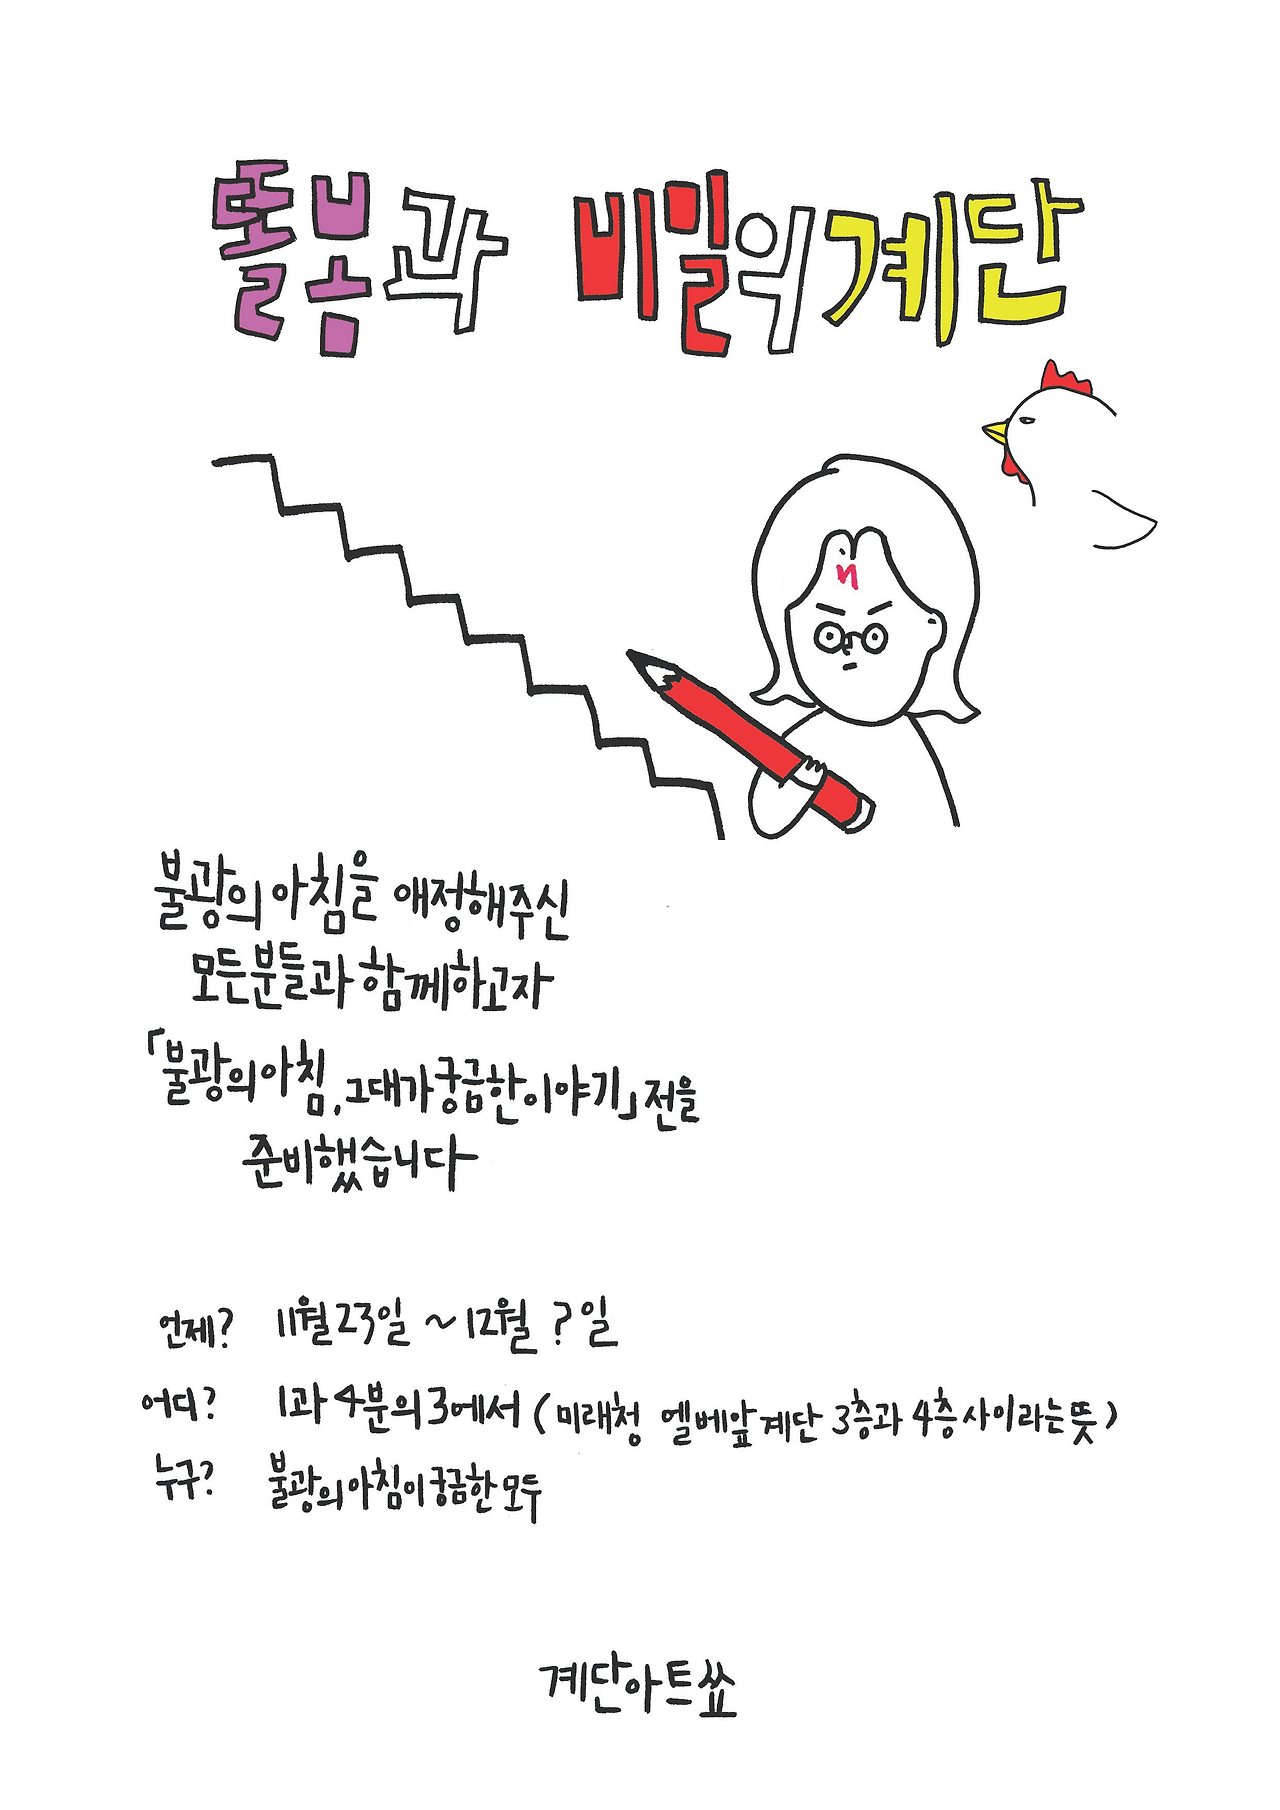 돌봄과 비밀의계단
불광의아침을 애정해주신
모든분들과 함께하고자
「불광의아침, 그대가궁금한이야기」전을
준비했습니다
언제? 11월23일 ~12월 ?일
어디? 1과 4분의3에서 (미래청 엘베앞계단 3층과 4층사이라는뜻)
누구? 불광의아침이궁금한모두
계단아트쑈